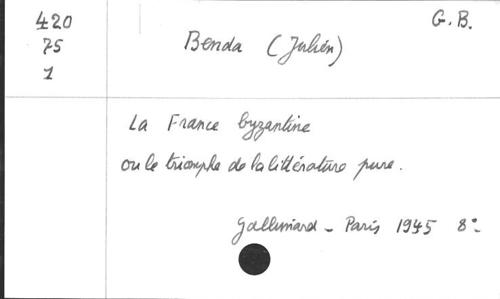 420 G. B.
75 Benda (Julien)
1
La France byzantine
ou le triomphe de la littérature pure.
Gallimard - Paris 1945 8°-